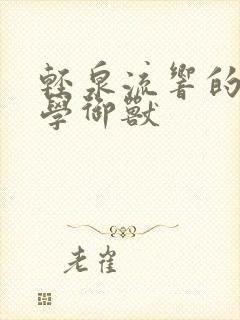 輕泉流響的
學御獸
老雀